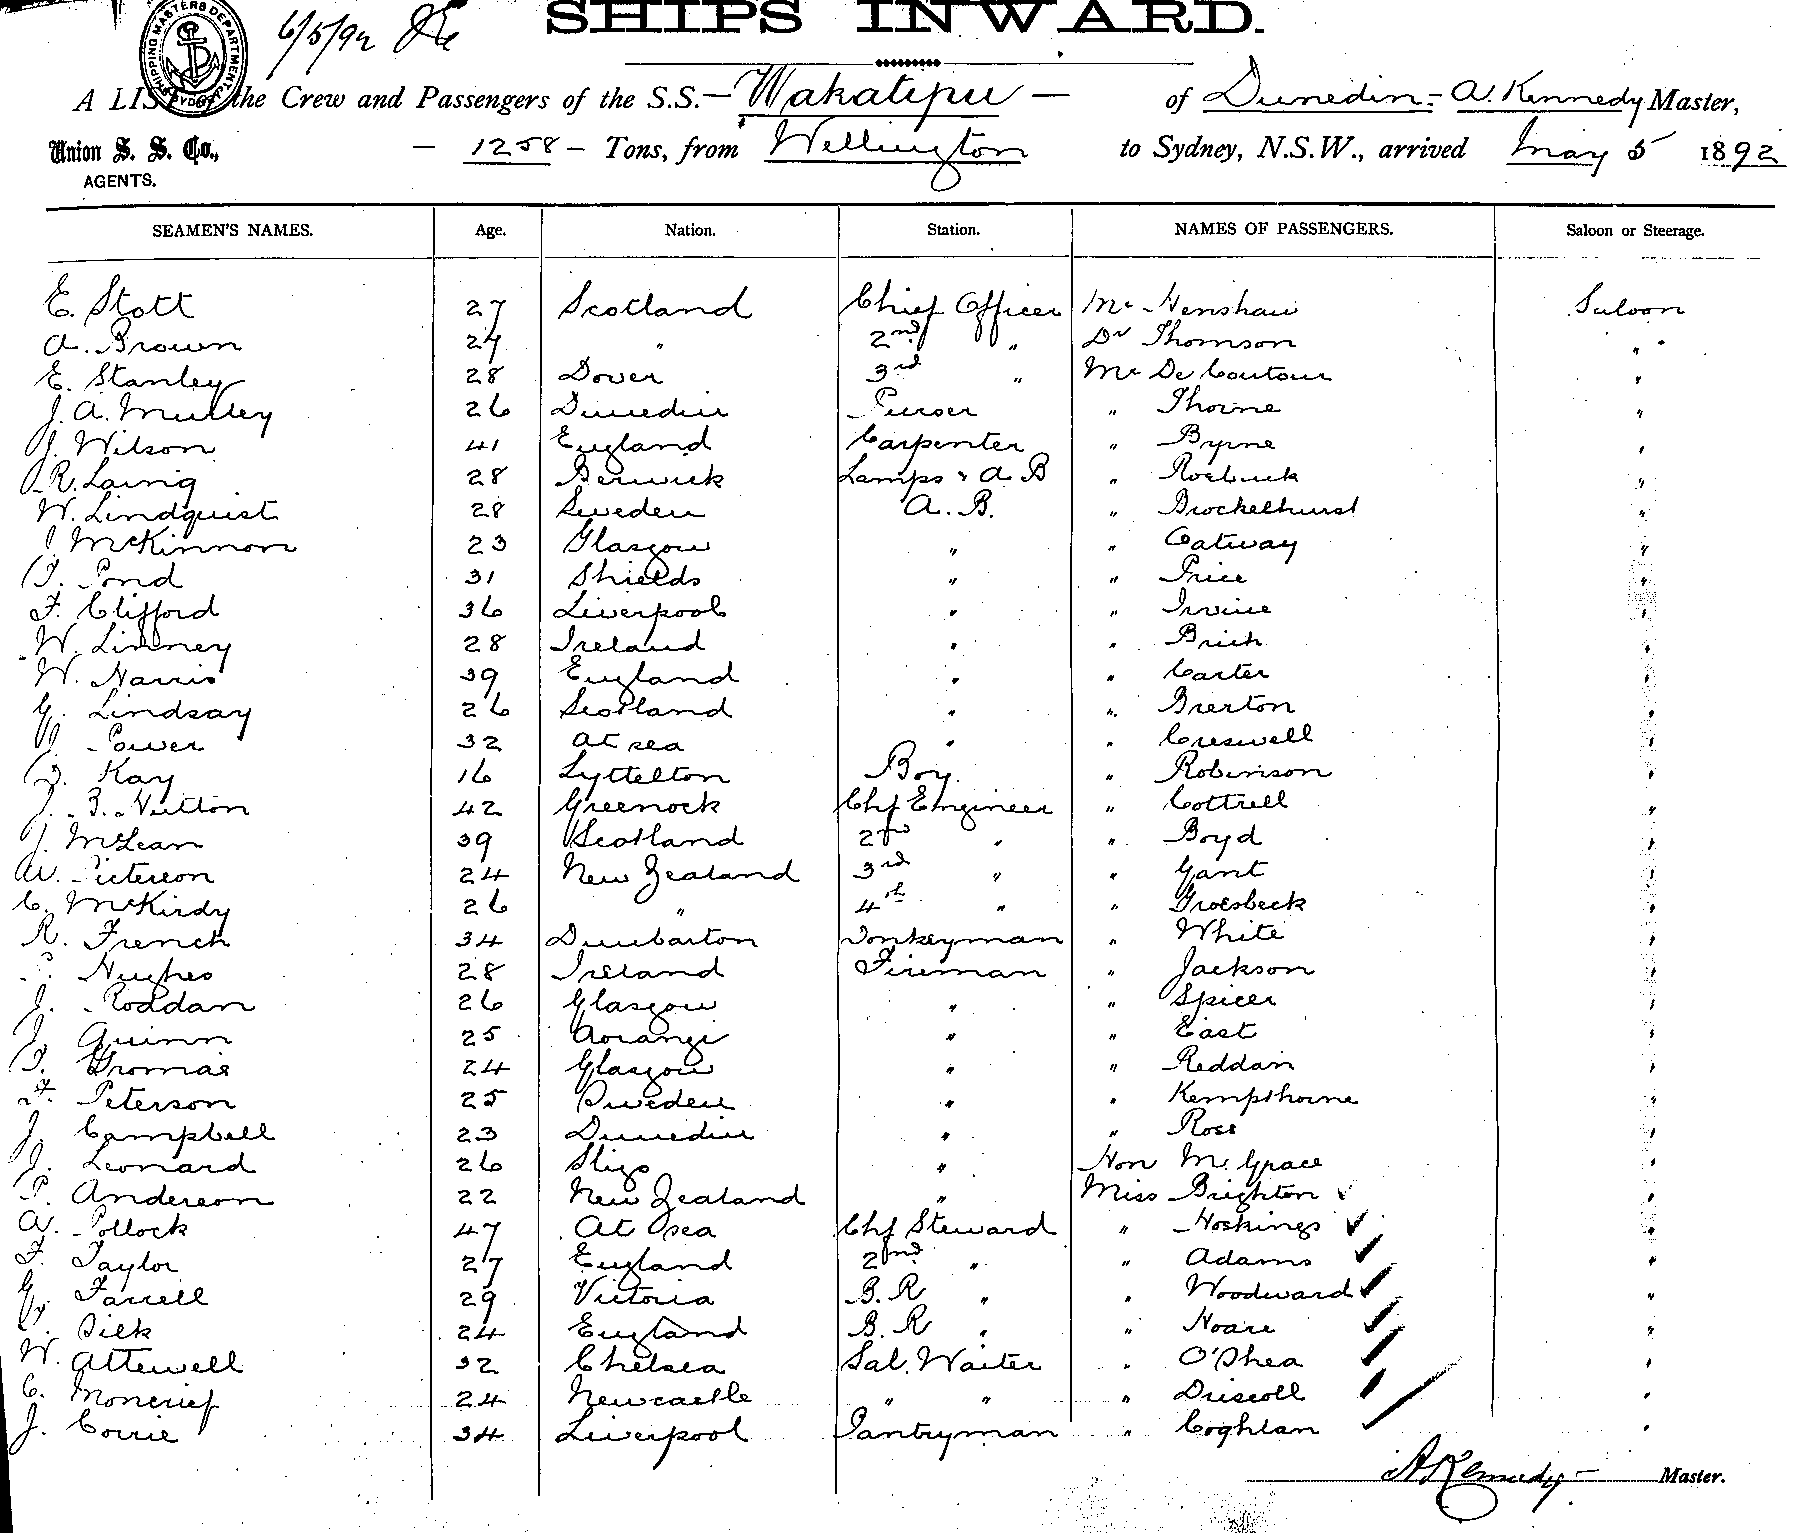 6/5/92
SHIPS INWARD.
SHIPPING MASTERS DEPARTMENT SYDNEY
A LIST of the Crew and Passengers of the S.S. — Wakatipu — of Dunedin - A. Kennedy Master,
Union S. S. Co., AGENTS. — 1258 — Tons, from Wellington to Sydney, N.S.W., arrived May 5 1892
SEAMEN'S NAMES. Age. Nation. Station. NAMES OF PASSENGERS. Saloon or Steerage.
E. Stott 27 Scotland Chief Officer Mr Henshaw Saloon
A. Brown 27 " 2nd " Dr Thomson "
E. Stanley 28 Dover 3rd " Mr De Coutour "
J. A. Mulley 26 Dunedin Purser " Thorne "
J. Wilson 41 England Carpenter " Byrne "
R. Laing 28 Berwick Lamps & A B " Roebuck "
W. Lindquist 28 Sweden A. B. " Brockelhurst "
J. McKinnon 23 Glasgow " " Catway "
T. Pond 31 Shields " " Price "
F. Clifford 36 Liverpool " " Irvine "
W. Linney 28 Ireland " " "
W. Harris 39 England " " Carter "
G. Lindsay 26 Scotland " " Brerton "
J. Power 32 At sea " " Creswell "
T. Kay 16 Lyttelton Boy. " Robinson "
J. B. Hutton 42 Greenock Chf Engineer " Cottrell "
J. McLean 39 Scotland 2nd " " Boyd "
W. Peterson 24 New Zealand 3rd " " Gant "
C. McKirdy 26 " 4th " " Groesbeck "
R. French 34 Dumbarton Donkeyman " White "
Hughes 28 Ireland Fireman " Jackson "
J. Roddan 26 Glasgow " " Spicer "
J. Quinn 25 Aorangi " " East "
T. Thomas 24 Glasgow " " Reddan "
F. Peterson 25 Sweden " " Kempthorne "
J. Campbell 23 Dunedin " " Rose "
J. Leonard 26 Sligo " Hon Mr Grace "
P. Anderson 22 New Zealand " Miss Brighton "
A. Pollock 47 At sea Chf Steward " Hoskings "
F. Taylor 27 England 2nd " " Adams "
G. Farrell 29 Victoria B. R " " Woodward "
Silk 24 England B. R " " Hoare "
W. Attewell 32 Chelsea Sal. Waiter " O'Shea "
C. Moncrief 24 Newcastle " " " Driscoll "
J. Corrie 34 Liverpool Pantryman " Coghlan "
A Kennedy — Master.